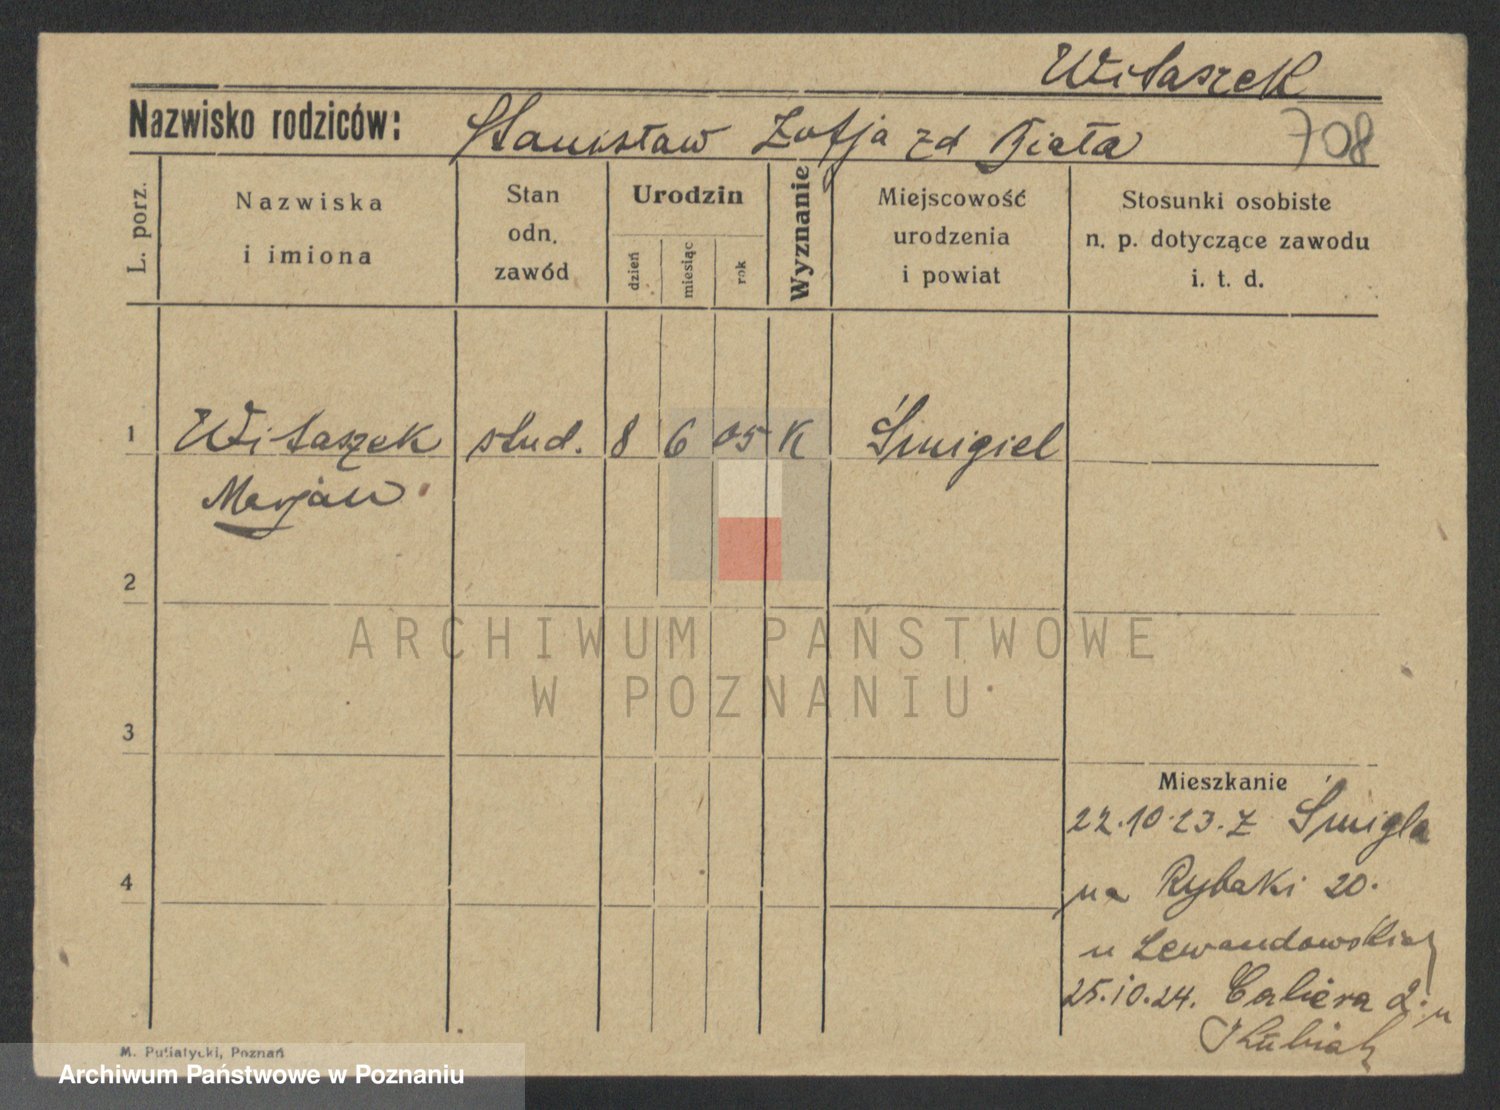 Witaszek
Nazwisko rodziców: Stanisław Zofja zd Biała 708
L. porz.
Nazwiska
i imiona
Stan
odn.
zawód
Urodzin
dzień
miesiąc
rok
Wyznanie
Miejscowość
urodzenia
i powiat
Stosunki osobiste
n. p. dotyczące zawodu
i. t. d.
1 Witaszek stud. 8 6 05 K Śmigiel
Marjan
2
ARCHIWUM PAŃSTWOWE
W POZNANIU
3
Mieszkanie
22.10.23. z Śmigla
4
na Rybaki 20.
u Lewandowskiej
25.10.24. 2. u
Kubiak
M. Putiatycki, Poznań
Archiwum Państwowe w Poznaniu